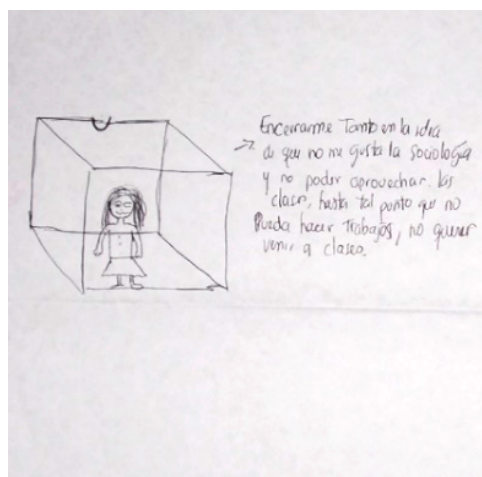 Encerrarme Tanto en la idea
de que no me gusta la sociología
y no poder aprovechar. las
clases, hasta tal punto que no
Pueda hacer Trabajos, no querer
venir a clases.